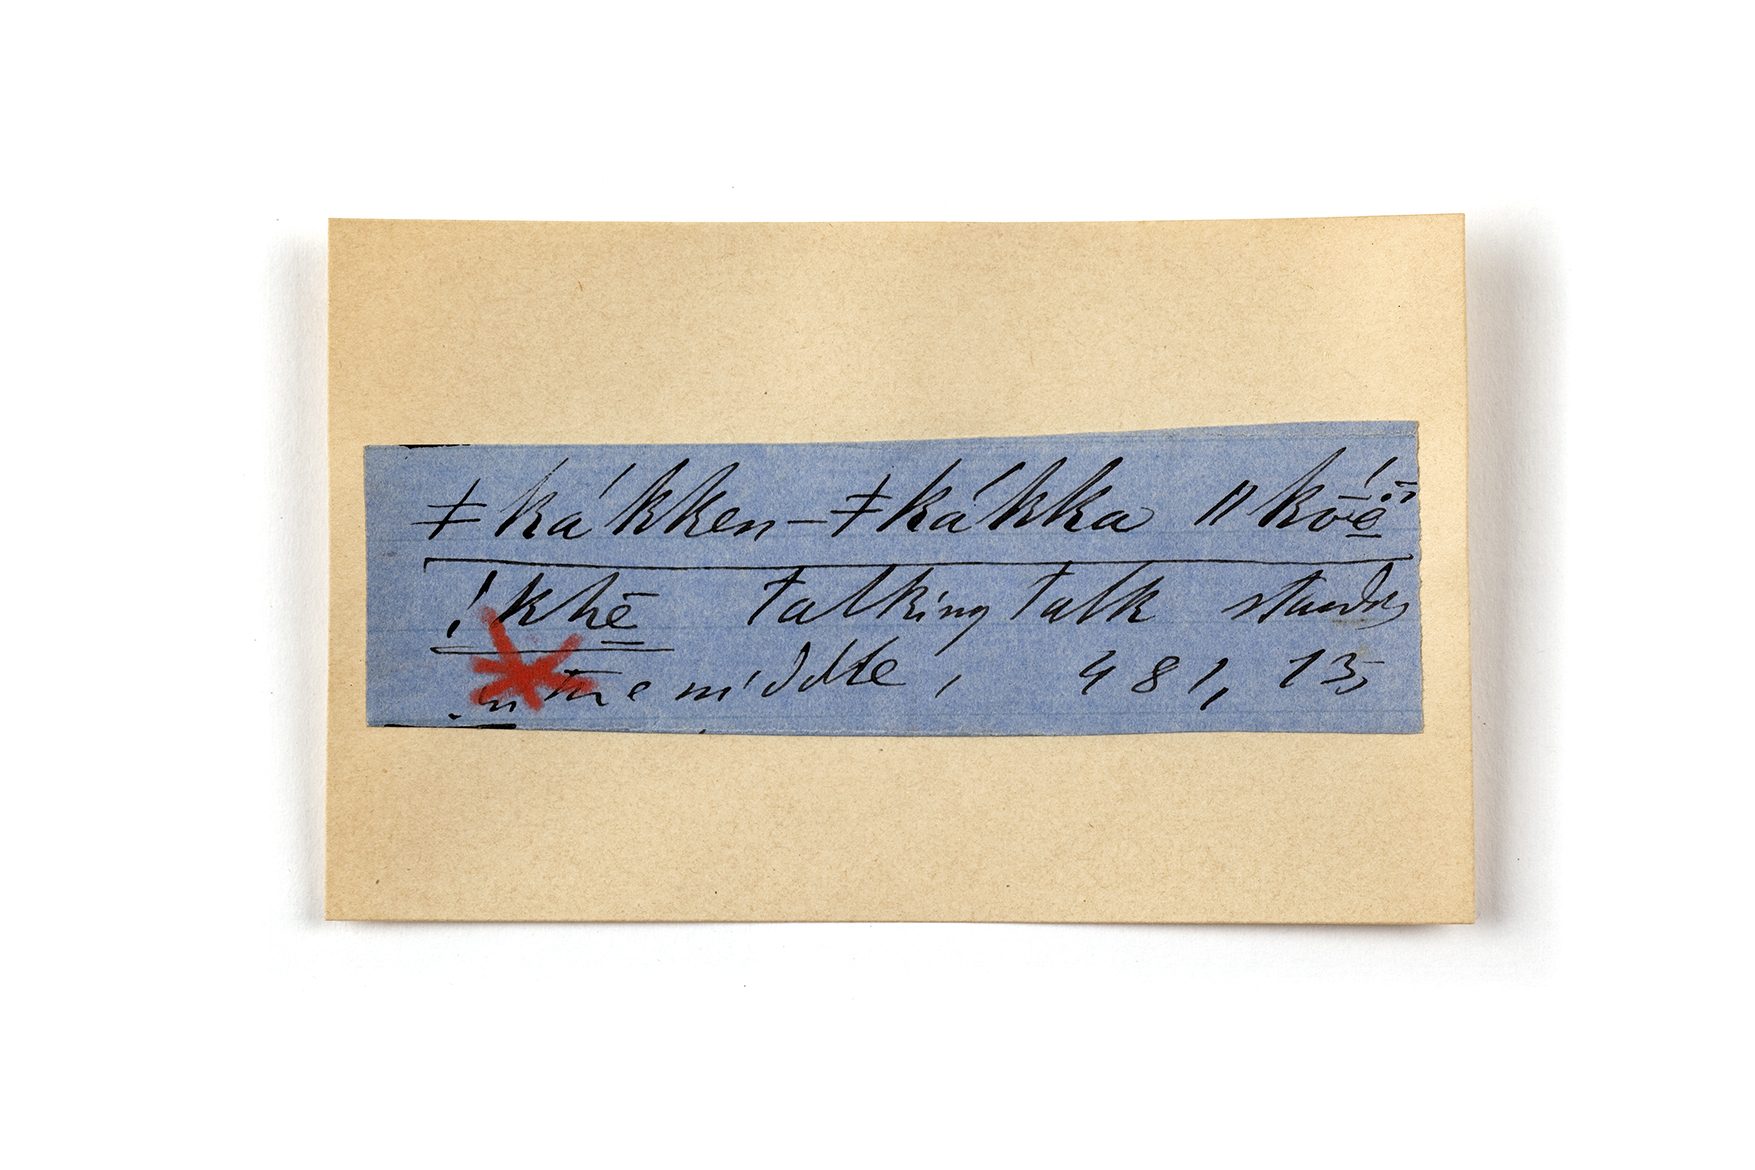 ǂkákken-ǂkákka ǁkō̆é̤̈
!khē̤ talking talk stands
in the middle, 481, 13,